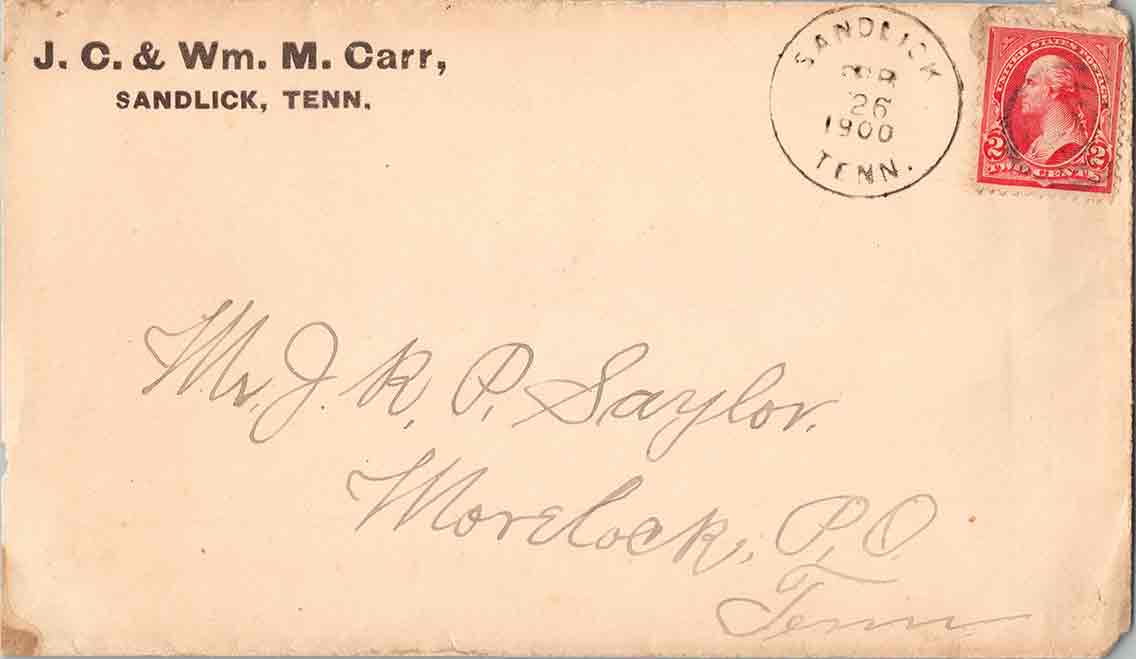 J. C. & Wm. M. Carr,
SANDLICK, TENN.
SANDLICK
26
1900
TENN.
UNITED STATES POSTAGE
2 2
TWO CENTS
Mr. J. R. P. Saylor.
Morelock, P. O.
Tenn